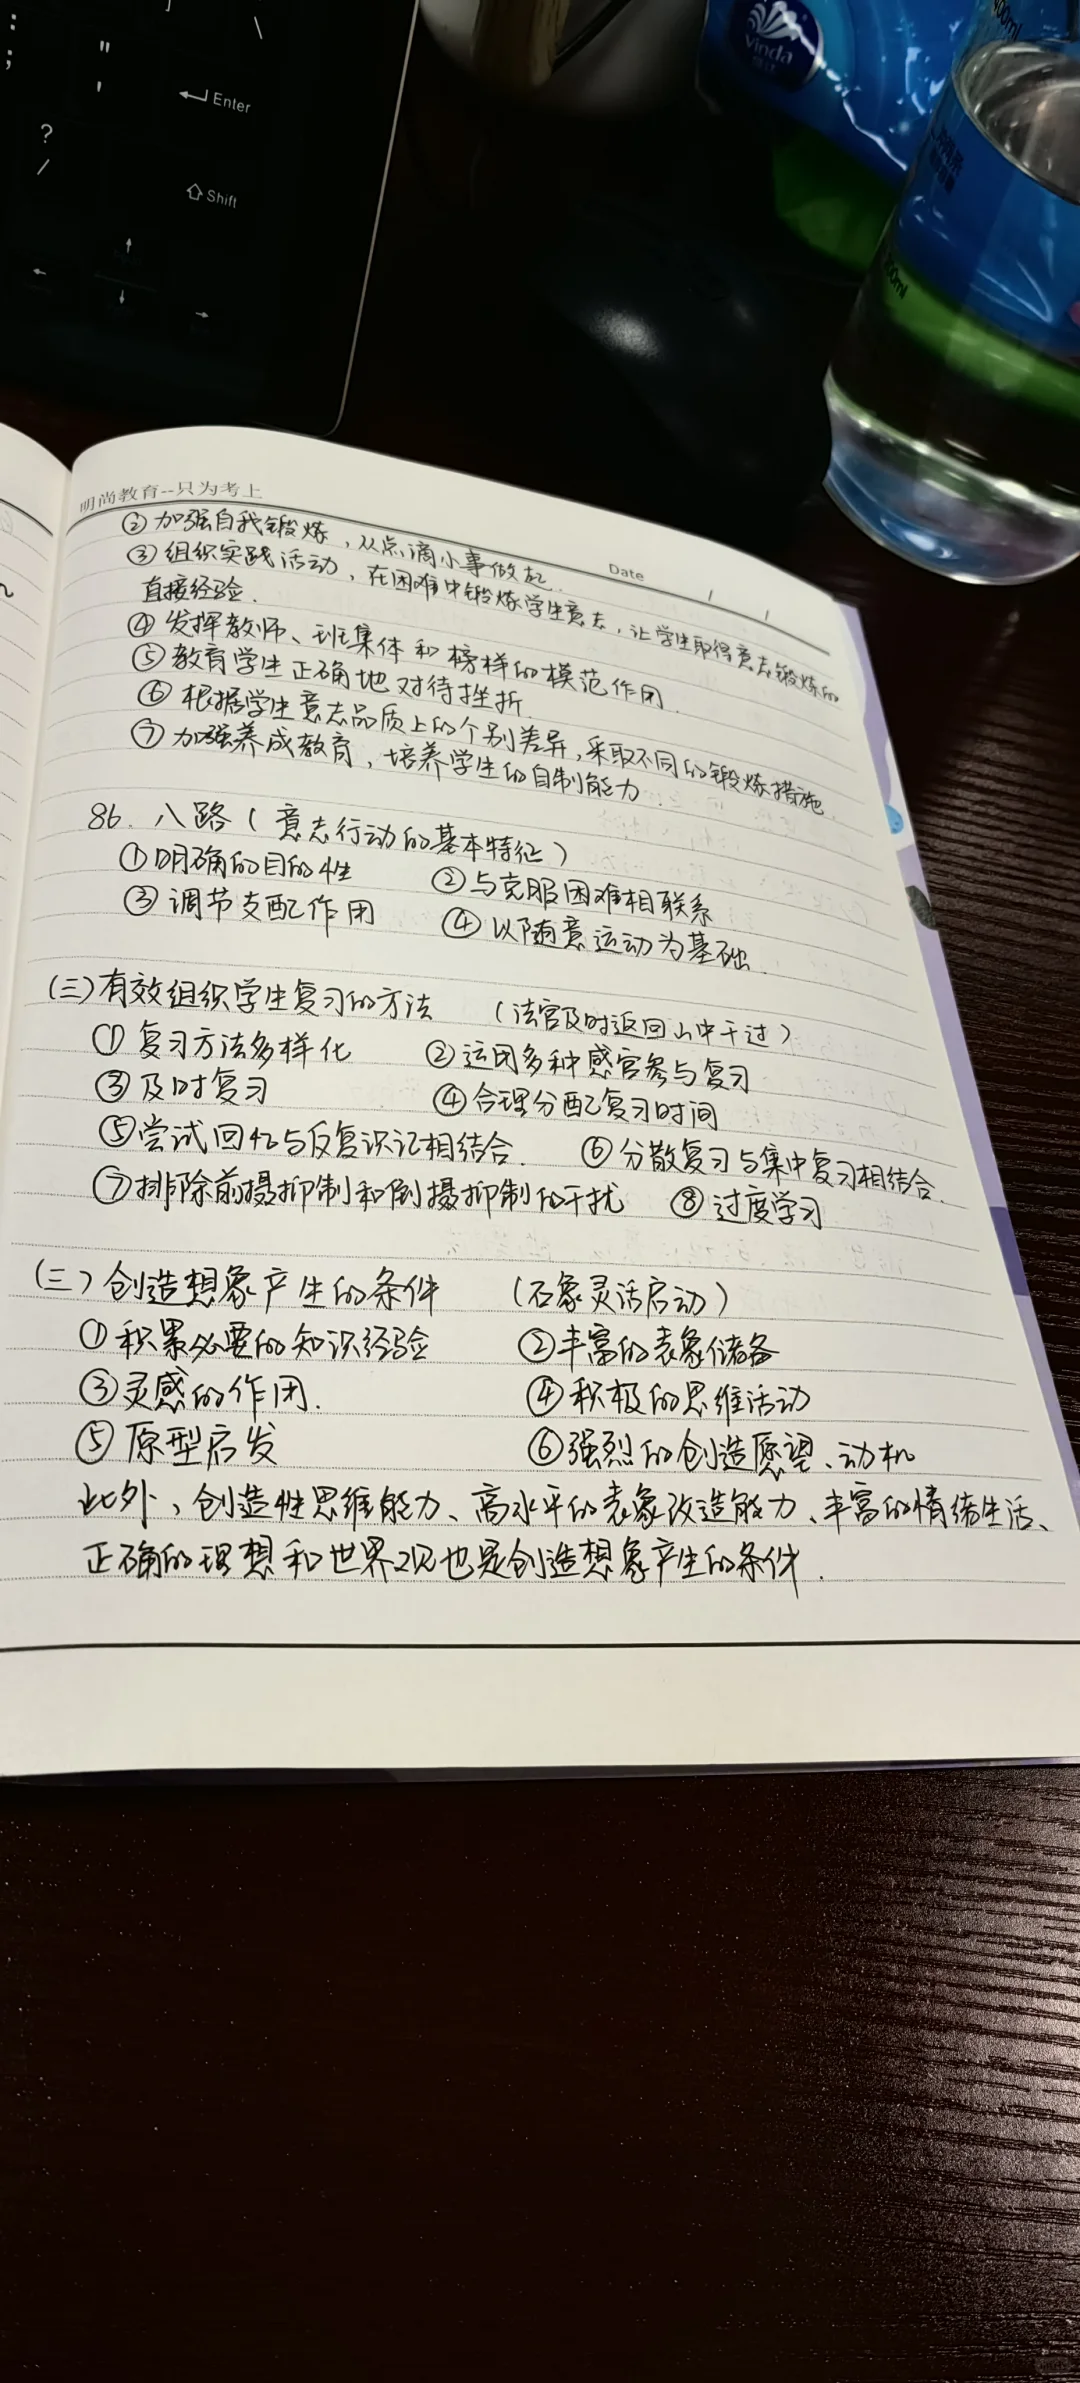 :
;
"
'
\
Enter
?
/
Shift
vinda
400ml
200ml
明尚教育--只为考上
Date
② 加强自我锻炼，从点滴小事做起.
③ 组织实践活动，在困难中锻炼学生意志，让学生取得意志锻炼的
直接经验.
④ 发挥教师、班集体和榜样的模范作用.
⑤ 教育学生正确地对待挫折.
⑥ 根据学生意志品质上的个别差异，采取不同的锻炼措施.
⑦ 加强养成教育，培养学生的自制能力.
86. 八路（意志行动的基本特征）
① 明确的目的性 ② 与克服困难相联系
③ 调节支配作用 ④ 以随意运动为基础.
(三) 有效组织学生复习的方法 （法官及时返回山中干过）
① 复习方法多样化 ② 运用多种感官参与复习
③ 及时复习 ④ 合理分配复习时间
⑤ 尝试回忆与反复识记相结合. ⑥ 分散复习与集中复习相结合.
⑦ 排除前摄抑制和倒摄抑制的干扰 ⑧ 过度学习
(三) 创造想象产生的条件 （石象灵活启动）
① 积累必要的知识经验 ② 丰富的表象储备
③ 灵感的作用. ④ 积极的思维活动
⑤ 原型启发 ⑥ 强烈的创造愿望、动机
此外，创造性思维能力、高水平的表象改造能力、丰富的情绪生活、
正确的理想和世界观也是创造想象产生的条件.